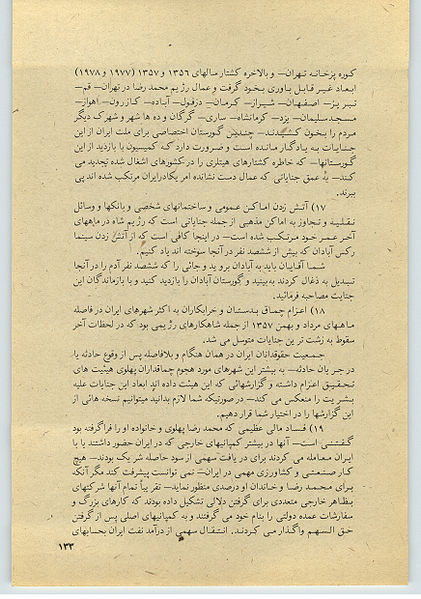 کوره پزخانه تهران— و بالاخره کشتار سالهای ۱۳۵۶ و ۱۳۵۷ (۱۹۷۷ و ۱۹۷۸)
ابعاد غیر قابل باوری بخود گرفت و عمال رژیم محمد رضا در تهران— قم—
تبریز— اصفهان— شیراز— کرمان— دزفول— آباده— کازرون— اهواز—
مسجدسلیمان— یزد— کرمانشاه— ساری— گرگان و ده ها شهر و شهرک دیگر
مردم را بخون کشیدند— چندین گورستان اختصاصی برای ملت ایران از این
جنایات به یادگار مانده است و ضرورت دارد که کمیسیون با بازدید از این
گورستانها— که خاطره کشتارهای هیتلری را در کشورهای اشغال شده تجدید می
کند— به عمق جنایاتی که عمال دست نشانده امریکادرایران مرتکب شده اند پی
ببرند.
۱۷) آتش زدن اماکن عمومی و ساختمانهای شخصی و بانکها و وسائل
نقلیه و تجاوز به اماکن مذهبی از جمله جنایاتی است که رژیم شاه در ماههای
آخر عمر خود مرتکب شده است— در اینجا کافی است که از آتش زدن سینما
رکس آبادان که بیش از ششصد نفر در آنجا سوخته اند یاد کنیم.
شما آقایان باید به آبادان بروید و جائی را که ششصد نفر آدم را در آنجا
تبدیل به ذغال کردند به بینید و گورستان آبادان را بازدید کنید و با بازماندگان این
جنایت مصاحبه فرمائید.
۱۸) اعزام چماق بدستان و خرابکاران به اکثر شهرهای ایران در فاصله
ماههای مرداد و بهمن ۱۳۵۷ از جمله شاهکارهای رژیمی بود که در لحظات آخر
سقوط به زشت ترین جنایات متوسل می شد.
جمعیت حقوقدانان ایران در همان هنگام و بلافاصله پس از وقوع حادثه یا
در جریان حادثه— به بیشتر این شهرهای مورد هجوم چماقداران پهلوی هیئت های
تحقیق اعزام داشته و گزارشهائی که این هیئت داده اند ابعاد این جنایات علیه
بشریت را منعکس می کند— در صورتیکه شما لازم بدانید میتوانیم نسخه هائی از
این گزارشها را در اختیار شما قرار دهیم.
۱۹) فساد مالی عظیمی که محمد رضا پهلوی و خانواده او را فراگرفته بود
گفتنی است— آنها در بیشتر کمپانیهای خارجی که در ایران حضور داشتند یا با
ایران معامله می کردند برای دریافت سهمی از سود حاصله شریک بودند— هیچ
کار صنعتی و کشاورزی مهمی در ایران— نمی توانست پیشرفت کند مگر آنکه
برای محمد رضا و خاندان او درصدی منظور نماید— تقریباً تمام آنها شرکتهای
بظاهر خارجی متعددی برای گرفتن دلالی تشکیل داده بودند که کارهای بزرگ و
سفارشات عمده دولتی را بنام خود می گرفتند و به کمپانیهای اصلی پس از گرفتن
حق السهم واگذار می کردند. انتقال سهمی از درآمد نفت ایران بحسابهای
۱۳۳